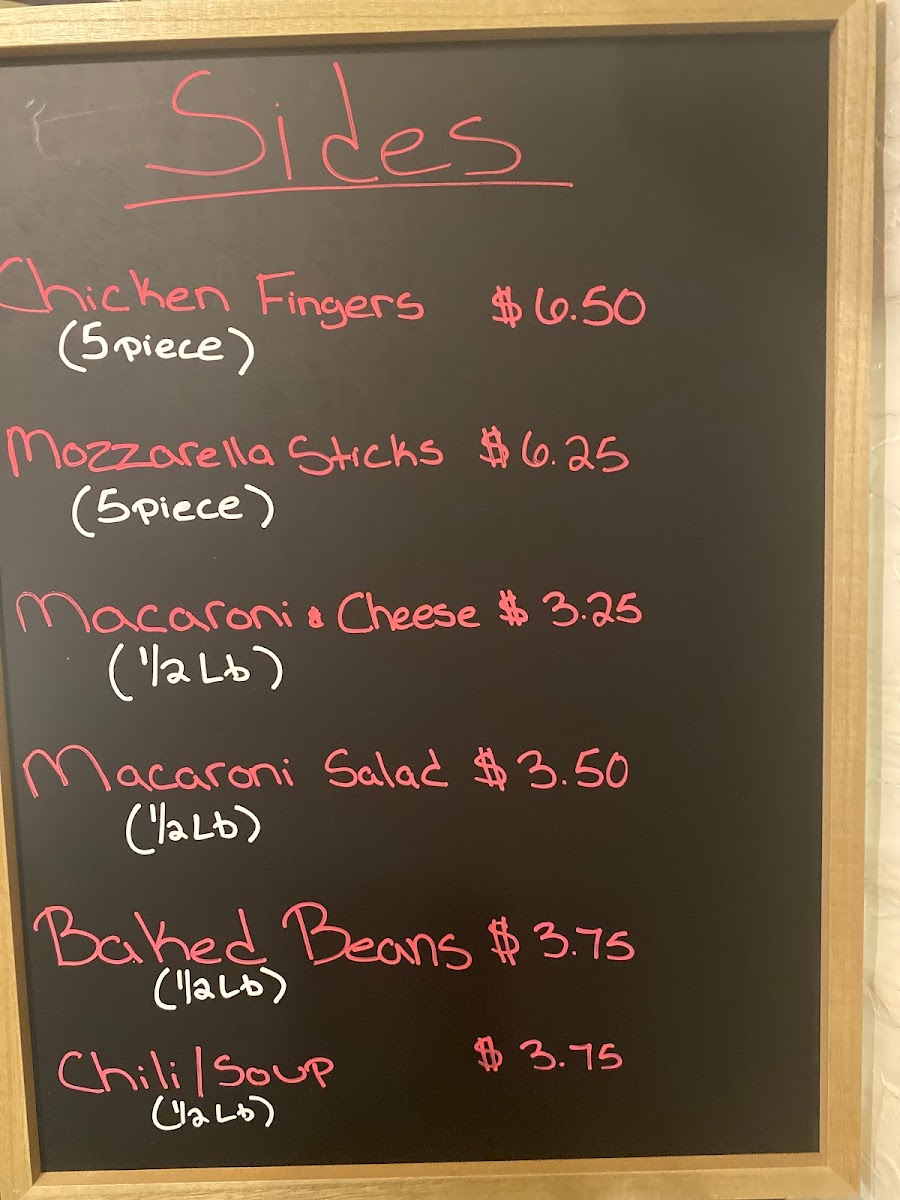 Sides
Chicken Fingers $6.50
(5piece)
Mozzarella Sticks $6.25
(5piece)
Macaroni & Cheese $3.25
(1/2 Lb)
Macaroni Salad $3.50
(1/2 Lb)
Baked Beans $3.75
(1/2 Lb)
Chili/Soup $3.75
(1/2 Lb)